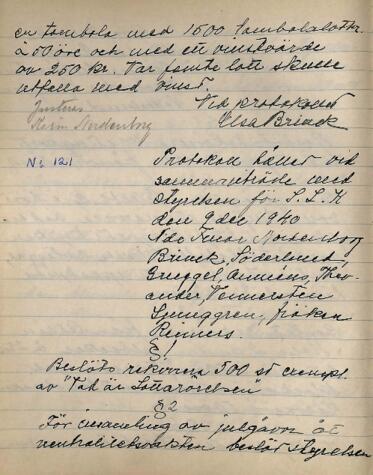 en tombola med 1500 tombolalotter
à 50 öre och med ett vinstvärde
av 250 kr. Var femte lott skulle
utfalla med vinst.
Vid protokollet
Elsa Brinck
Justeras
Karin Nordenborg
No 121
Protokoll hållet vid
sammanträde med
styrelsen för S. L. K
den 9 dec 1940
Nordenborg
Brinck, Söderlund
Theo-
ander, Wennersten
Ljunggren, fröken
Reimers.
§ 1
Beslöts rekvirera 500 st exempl.
av "Det är Lottarörelsen"
§ 2
För insamling av julgåvor åt
neutralitetsvakten beslöt styrelsen